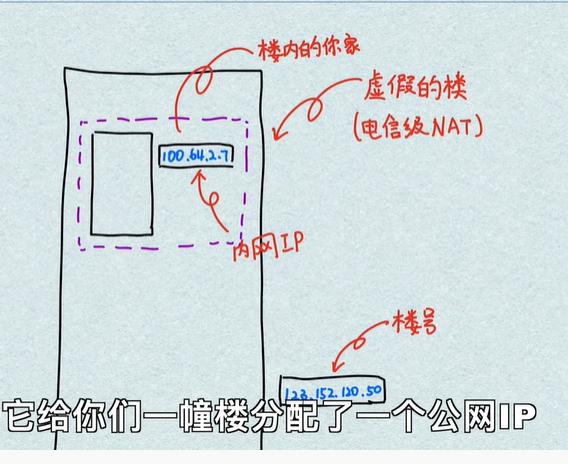 楼内的你家
虚假的楼
(电信级NAT)
100.64.2.7
内网IP
楼号
123.152.120.50
它给你们一幢楼分配了一个公网IP